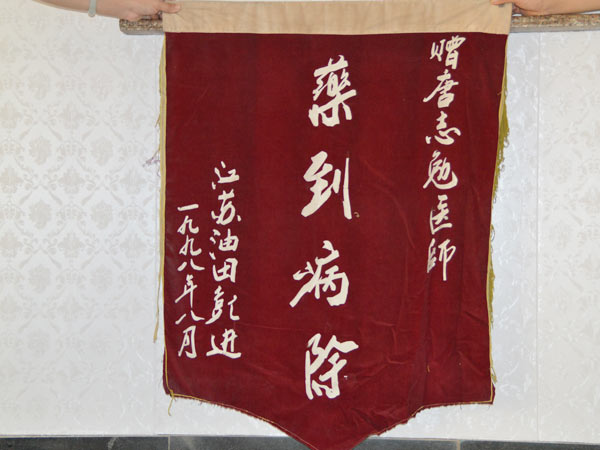 赠唐志勉医师
藥到病除
江苏油田彭进
一九九八年八月